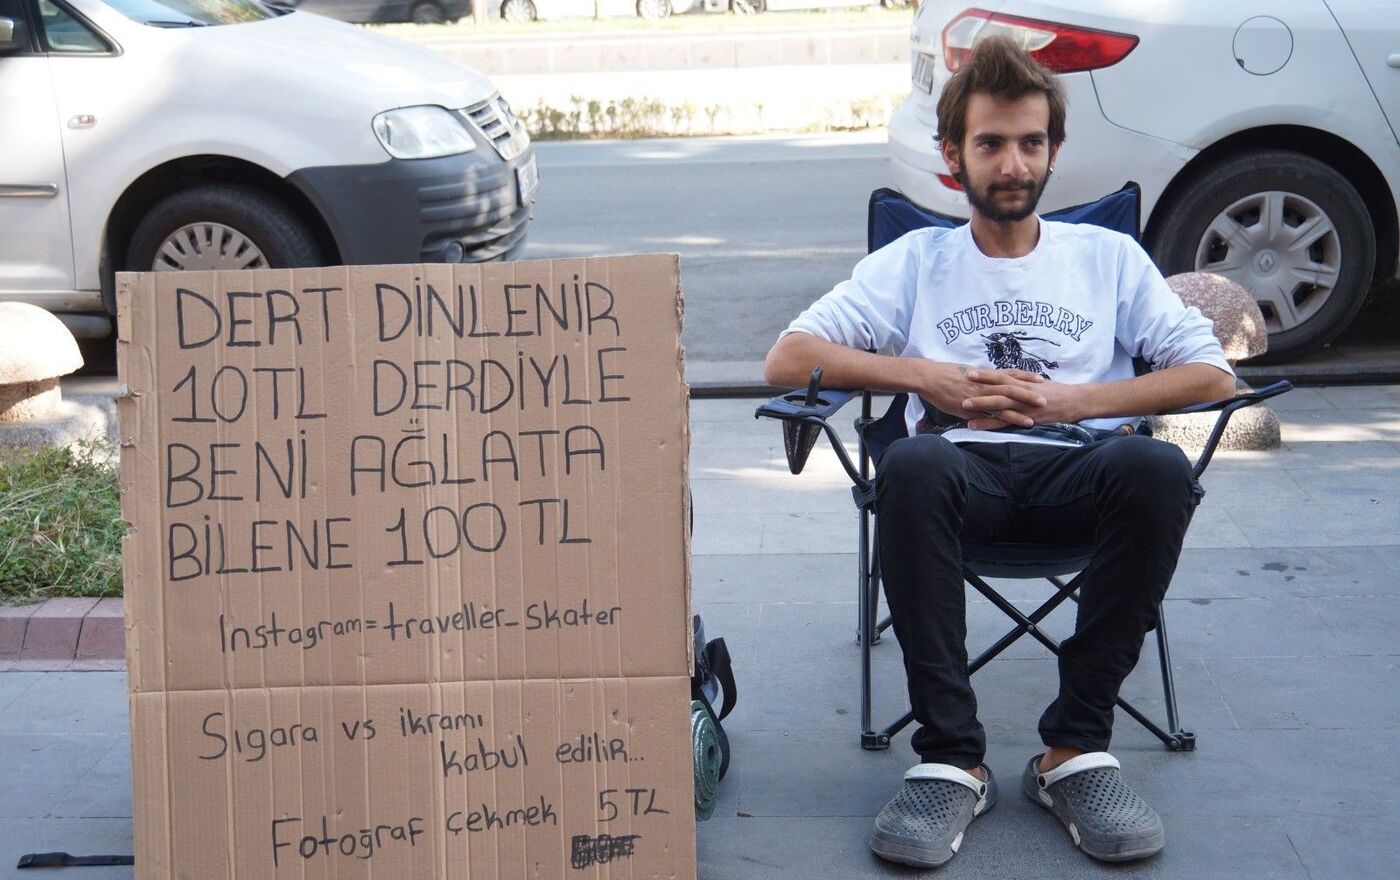 DERT DİNLENİR
10TL DERDİYLE
BENİ AĞLATA
BİLENE 100 TL
Instagram=traveller_skater
Sıgara vs ikramı
kabul edilir...
Fotoğraf çekmek 5TL
BURBERRY